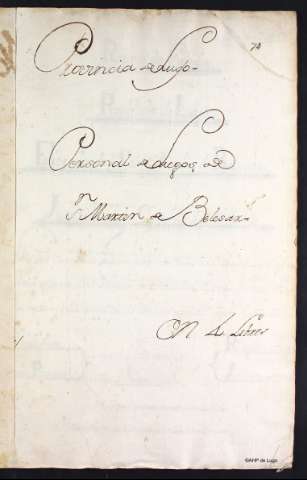 74
Provincia de Lugo
Personal de Legos de
Sn Martin de Belesar
N
©AHP de Lugo